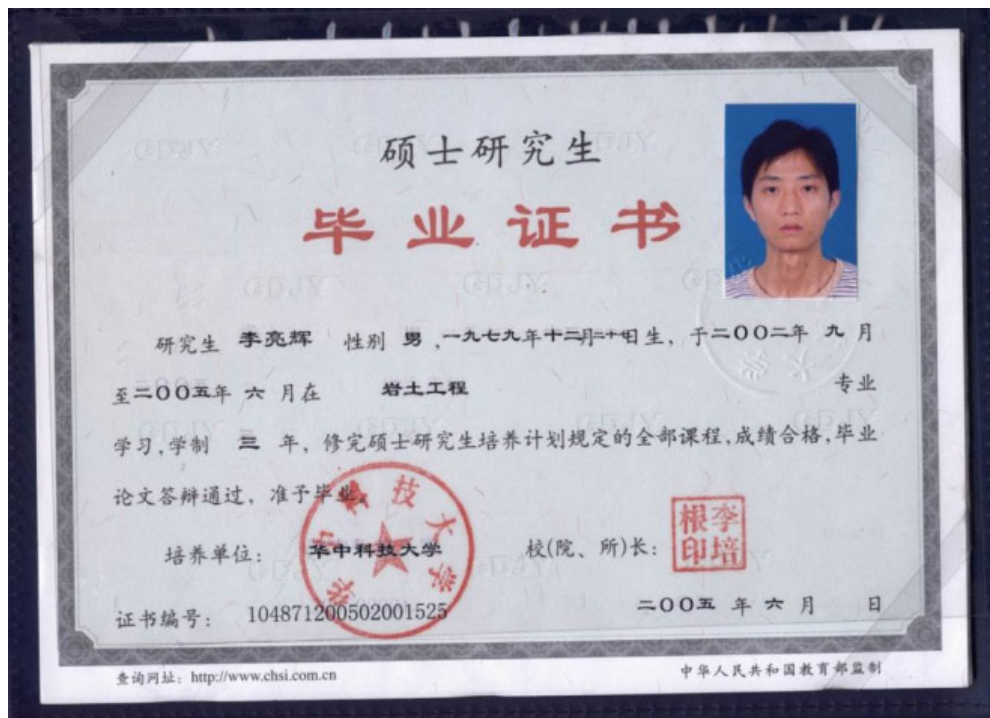 硕士研究生
毕业证书
研究生 李亮辉 性别 男 ,一九七九年十二月二十日生, 于二〇〇二年 九 月
至二〇〇五年 六 月在 岩土工程 专业
学习,学制 三 年, 修完硕士研究生培养计划规定的全部课程,成绩合格,毕业
论文答辩通过, 准予毕业。
培养单位: 华中科技大学 校(院、所)长: 李培根印
华中科技大学
证书编号: 104871200502001525 二〇〇五 年 六 月 日
查询网址: http://www.chsi.com.cn 中华人民共和国教育部监制